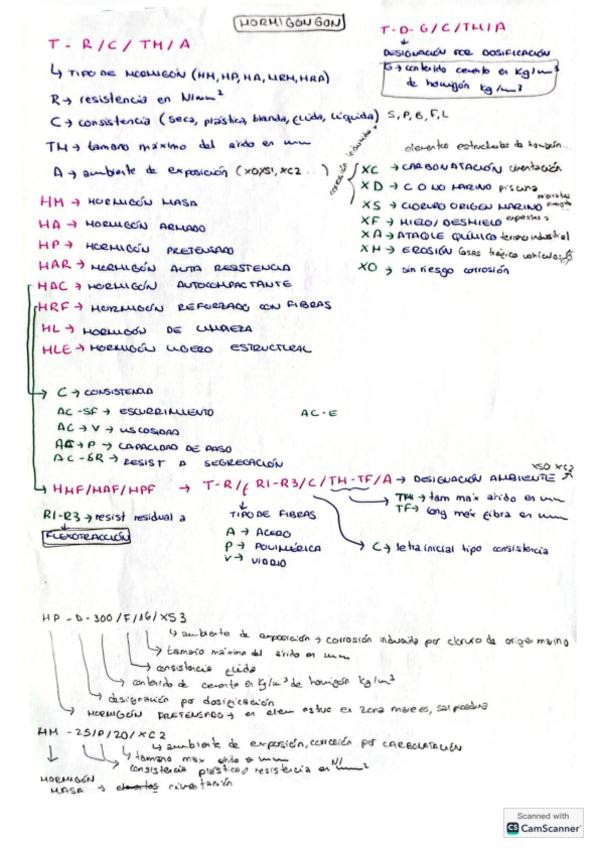 HORMIGONGON
T - R/C/TM/A
↳ TIPO DE HORMIGÓN (HM, HP, HA, HRM, HRA)
R → resistencia en N/mm²
C → consistencia (seca, plástica, blanda, fluida, líquida) S, P, B, F, L
TM → tamaño máximo del arido en mm
A → ambiente de exposición (X0, XS1, XC2...)
T-D-G/C/TM/A
DESIGNACIÓN POR DOSIFICACIÓN
G → contenido cemento en Kg/m³
de hormigón kg/m³
elementos estructurales de hormigón...
corrosión inducida
XC → CARBONATACIÓN cimentación
XD → C O NO MARINO piscina
XS → CLORURO ORIGEN MARINO
XF → HIELO/DESHIELO expuestos
XA → ATAQUE QUÍMICO terreno industrial
XM → EROSIÓN losas tráfico vehículos
XO → sin riesgo corrosión
HM → HORMIGÓN MASA
HA → HORMIGÓN ARMADO
HP → HORMIGÓN PRETENSADO
HAR → HORMIGÓN ALTA RESISTENCIA
HAC → HORMIGÓN AUTOCOMPACTANTE
HRF → HORMIGÓN REFORZADO CON FIBRAS
HL → HORMIGÓN DE LIMPIEZA
HLE → HORMIGÓN LIGERO ESTRUCTURAL
C → CONSISTENCIA
AC-SF → ESCURRIMIENTO AC-E
AC → V → VISCOSIDAD
AC → P → CAPACIDAD DE PASO
AC-SR → RESIST A SEGREGACIÓN
HMF/HAF/HPF → T-R/f R1-R3/C/TM-TF/A → DESIGNACIÓN AMBIENTE XS0 XC2
R1-R3 → resist residual a
FLEXOTRACCIÓN
TIPO DE FIBRAS
A → ACERO
P → POLIMÉRICA
V → VIDRIO
TM → tam max arido en mm
TF → long max fibra en mm
C → letra inicial tipo consistencia
HP - D - 300/F/16/XS3
↳ ambiente de exposición → corrosión inducida por cloruro de origen marino
→ tamaño máximo del arido en mm
→ consistencia fluida
→ contenido de cemento en Kg/m³ de hormigón kg/m³
→ designación por dosificación
→ HORMIGÓN PRETENSADO → en elem estruc en zona mareas, salpicadura
HM - 25/P/20/XC2
↳ ambiente de exposición, corrosión por CARBONATACIÓN
→ tamaño max arido en mm
consistencia plástica, resistencia en N/mm²
HORMIGÓN
MASA → cimentación
Scanned with
CS CamScanner